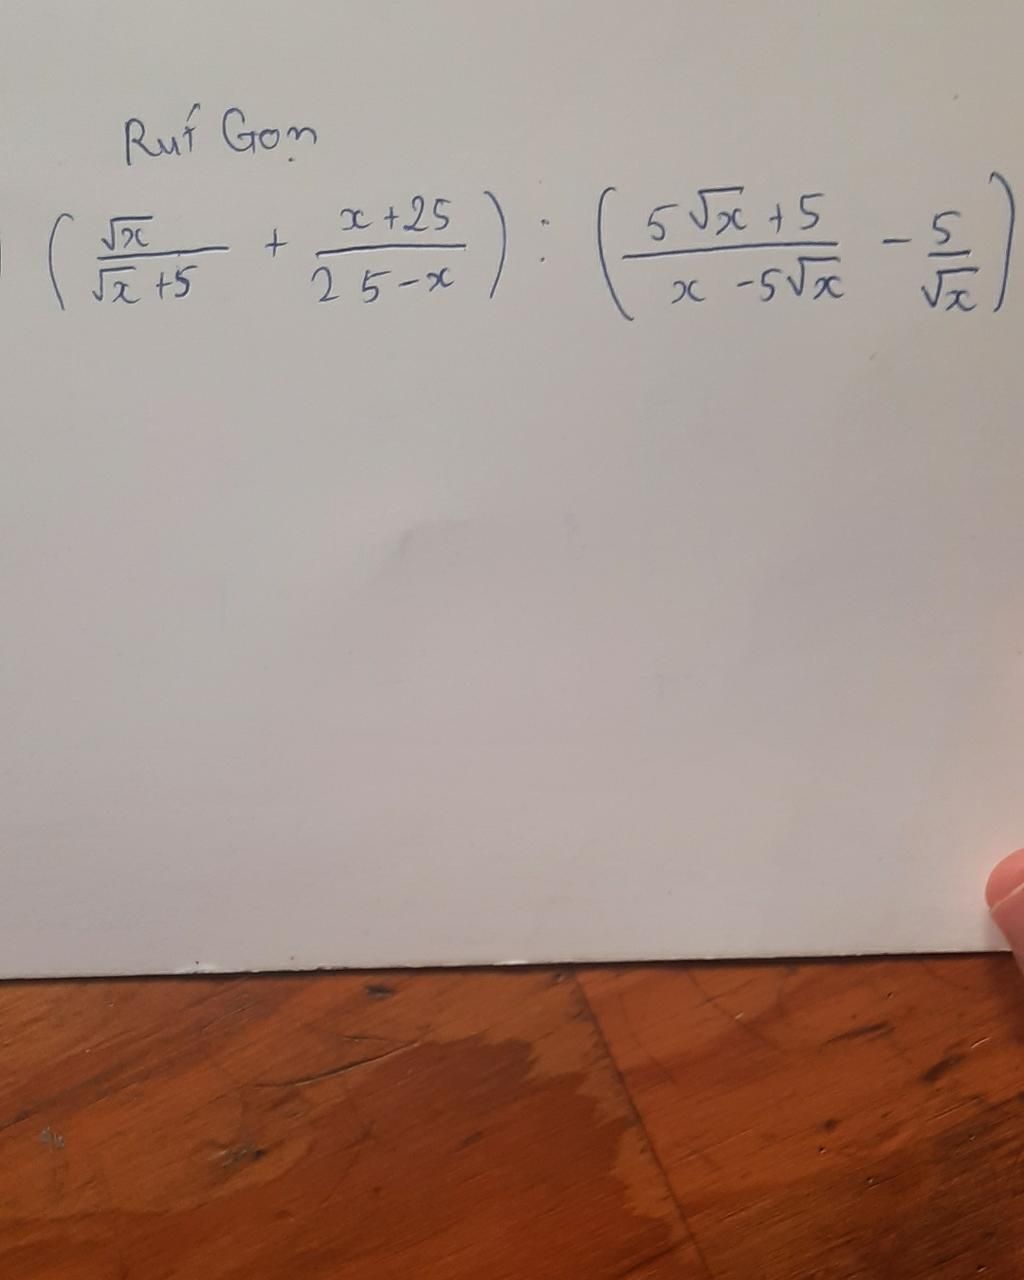 Rút Gọn
( √x / (√x + 5) + (x + 25) / (25 - x) ) : ( (5√x + 5) / (x - 5√x) - 5 / √x )